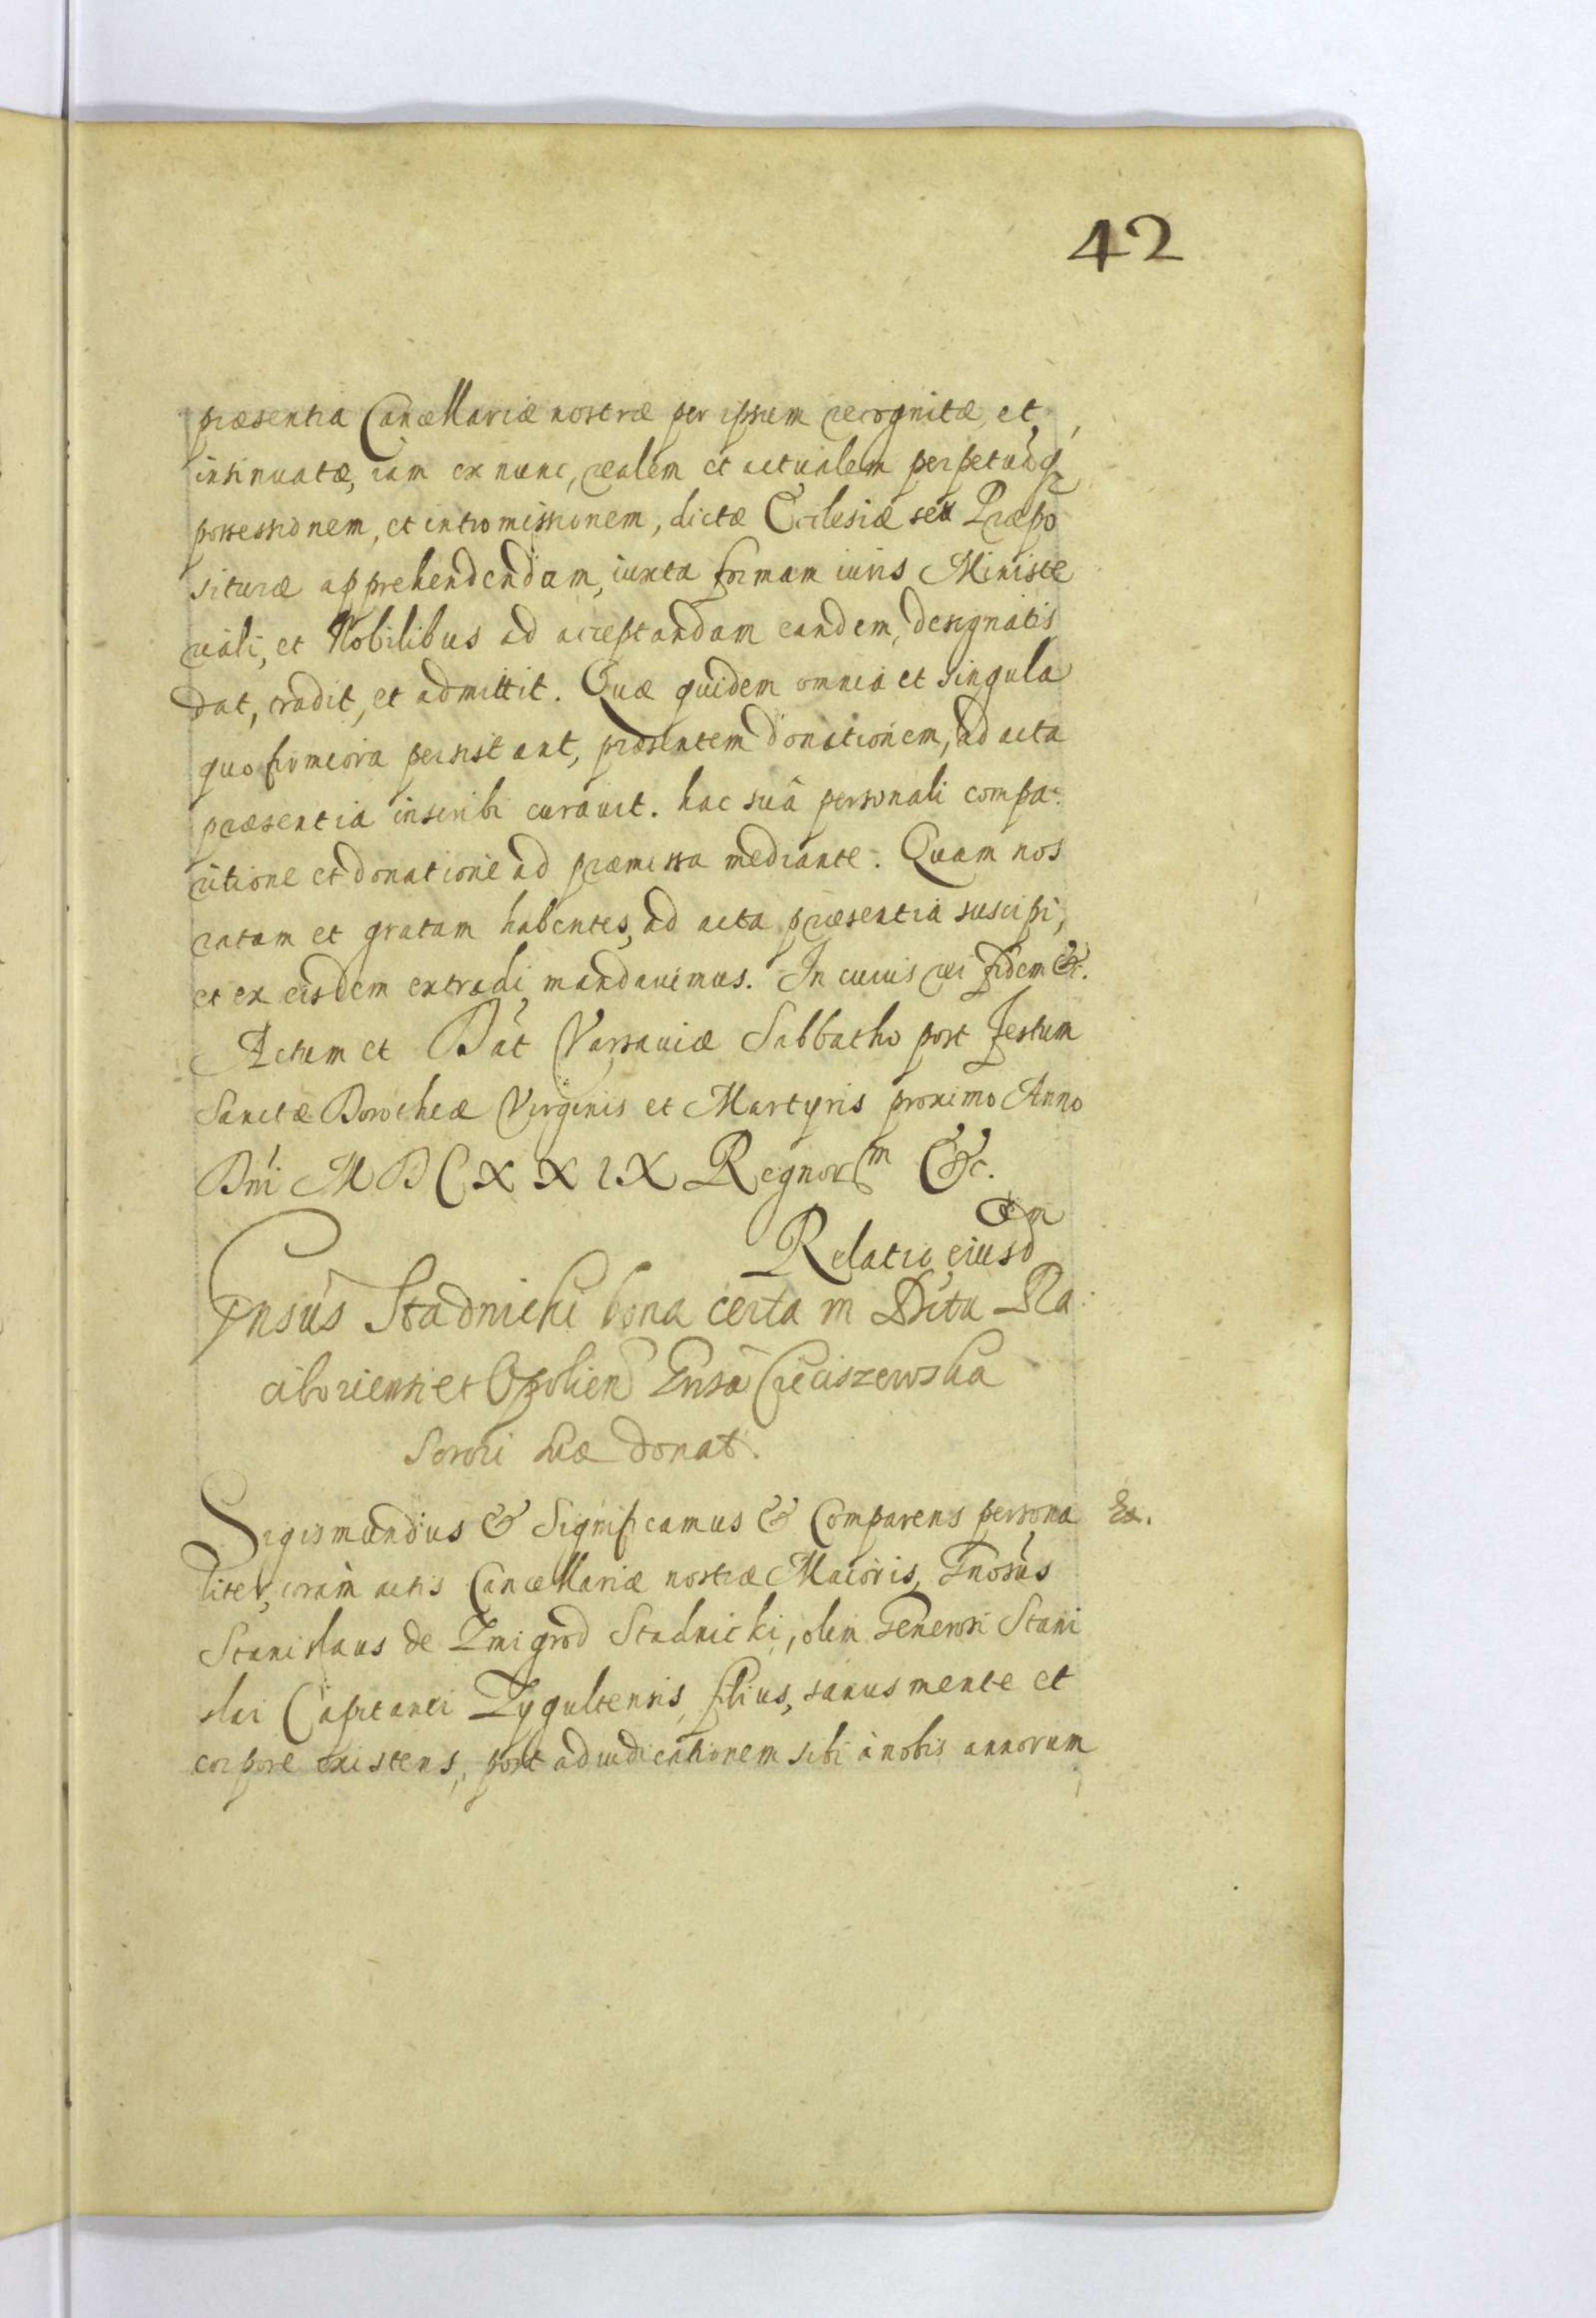 42
præsentia Cancellariæ nostræ per ipsum recognitæ, et
insinuatæ, iam ex nunc, realem et actualem perpetuāq
possessionem, et intromissionem, dictæ Ecclesiæ seu Præpo
situræ apprehendendam, iuxta formam iuris Ministe
riali, et Nobilibus ad acceptandam eandem, designatis
dat, tradit, et admittit. Quæ quidem omnia et singula
quo firmiora persistant, præsentem donationem, ad acta
præsentia inscribi curauit. hac suâ personali compa:
ritione et donatione ad præmissa mediante. Quam nos
ratam et gratam habentes, ad acta præsentia suscipi,
et ex eisdem extradi mandauimus. In cuius rei fidem &c.
Actum et Dat Varsauiæ Sabbatho post Festum
Sanctæ Dorotheæ Virginis et Martyris proximo Anno
Dni M D C X X I X Regnorm &c.
Relatio eiusdem
Gnsus Stadnicki bona certa in Dttu Ra:
ciboriensi et Opolien Gnsæ Cieciszewska
Sorori suæ donat.
Sigismundus & Significamus & Comparens persona
Ex.
liter, coràm actis Cancellariæ nostræ Maioris, Gnosus
Stanislaus de Zmigrod Stadnicki, olim Generosi Stani
slai Capitanei Zygultensis, filius, sanus mente et
corpore existens, post adiudicationem sibi à nobis annorum